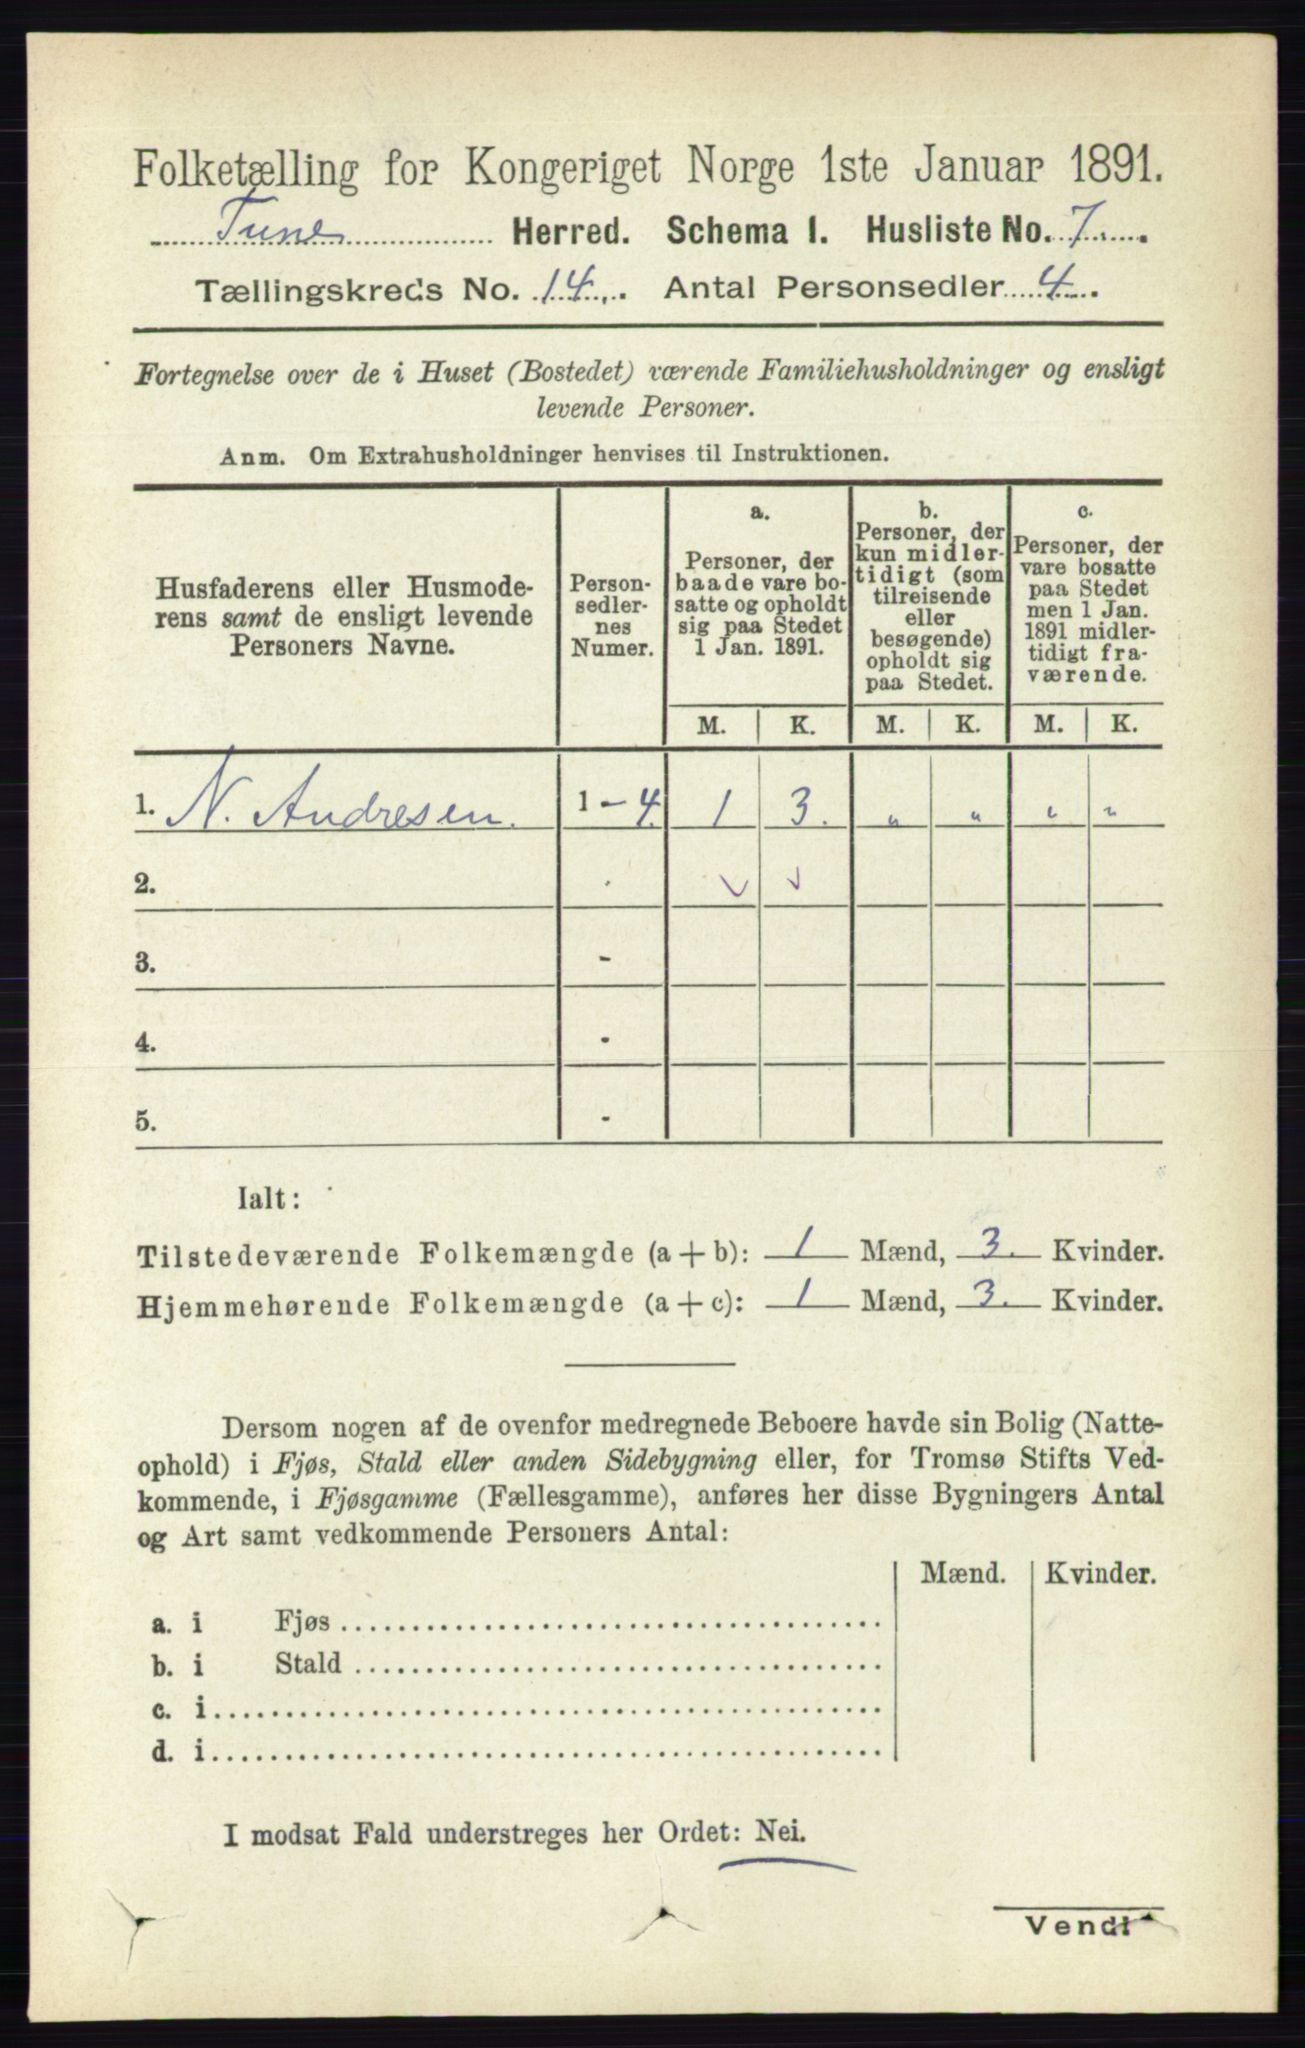 Folketælling for Kongeriget Norge 1ste Januar 1891.
Tune Herred. Schema I. Husliste No. 7.
Tællingskreds No. 14. Antal Personsedler 4.
Fortegnelse over de i Huset (Bostedet) værende Familiehusholdninger og ensligt
levende Personer.
Anm. Om Extrahusholdninger henvises til Instruktionen.
Husfaderens eller Husmode-
rens samt de ensligt levende
Personers Navne.
Person-
sedler-
nes
Numer.
a.
Personer, der
baade vare bo-
satte og opholdt
sig paa Stedet
1 Jan. 1891.
b.
Personer, der
kun midler-
tidigt (som
tilreisende
eller
besøgende)
opholdt sig
paa Stedet.
c.
Personer, der
vare bosatte
paa Stedet
men 1 Jan.
1891 midler-
tidigt fra-
værende.
M. K. M. K. M. K.
1. N. Andresen. 1 - 4. 1 3. „ „ „ „
2. -
3. -
4. -
5. -
Ialt:
Tilstedeværende Folkemængde (a + b): 1 Mænd, 3. Kvinder.
Hjemmehørende Folkemængde (a + c): 1 Mænd, 3. Kvinder.
Dersom nogen af de ovenfor medregnede Beboere havde sin Bolig (Natte-
ophold) i Fjøs, Stald eller anden Sidebygning eller, for Tromsø Stifts Ved-
kommende, i Fjøsgamme (Fællesgamme), anføres her disse Bygningers Antal
og Art samt vedkommende Personers Antal:
Mænd. Kvinder.
a. i Fjøs
b. i Stald
c. i
d. i
I modsat Fald understreges her Ordet: Nei.
Vend!